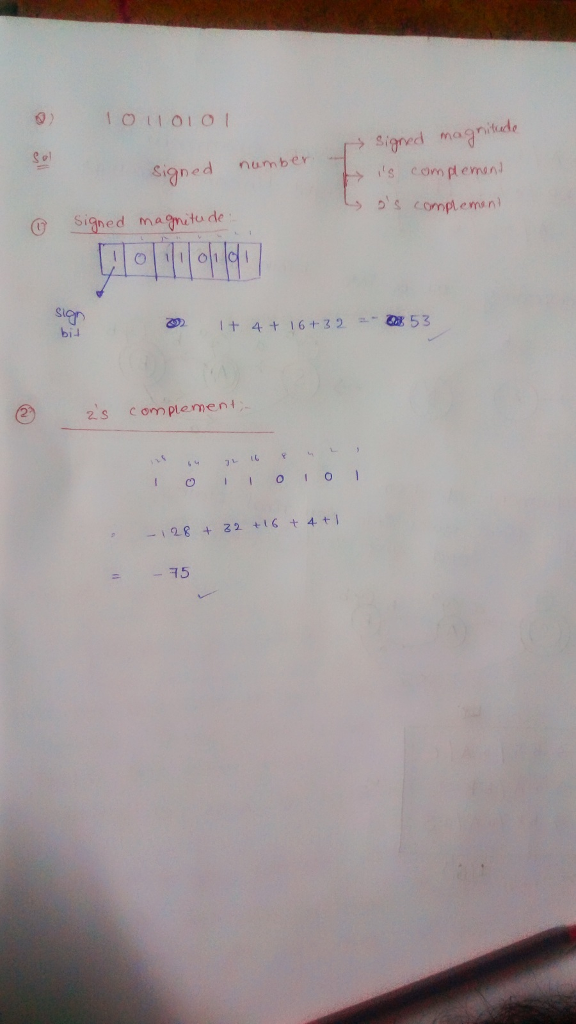 Q) 10110101
Sol signed number → signed magnitude
→ 1's complement
→ 2's complement
① signed magnitude:
1 0 1 1 0 1 0 1
sign bit
1 + 4 + 16 + 32 = - 53
② 2's complement:-
128 64 32 16 8 4 2 1
1 0 1 1 0 1 0 1
= -128 + 32 + 16 + 4 + 1
= -75